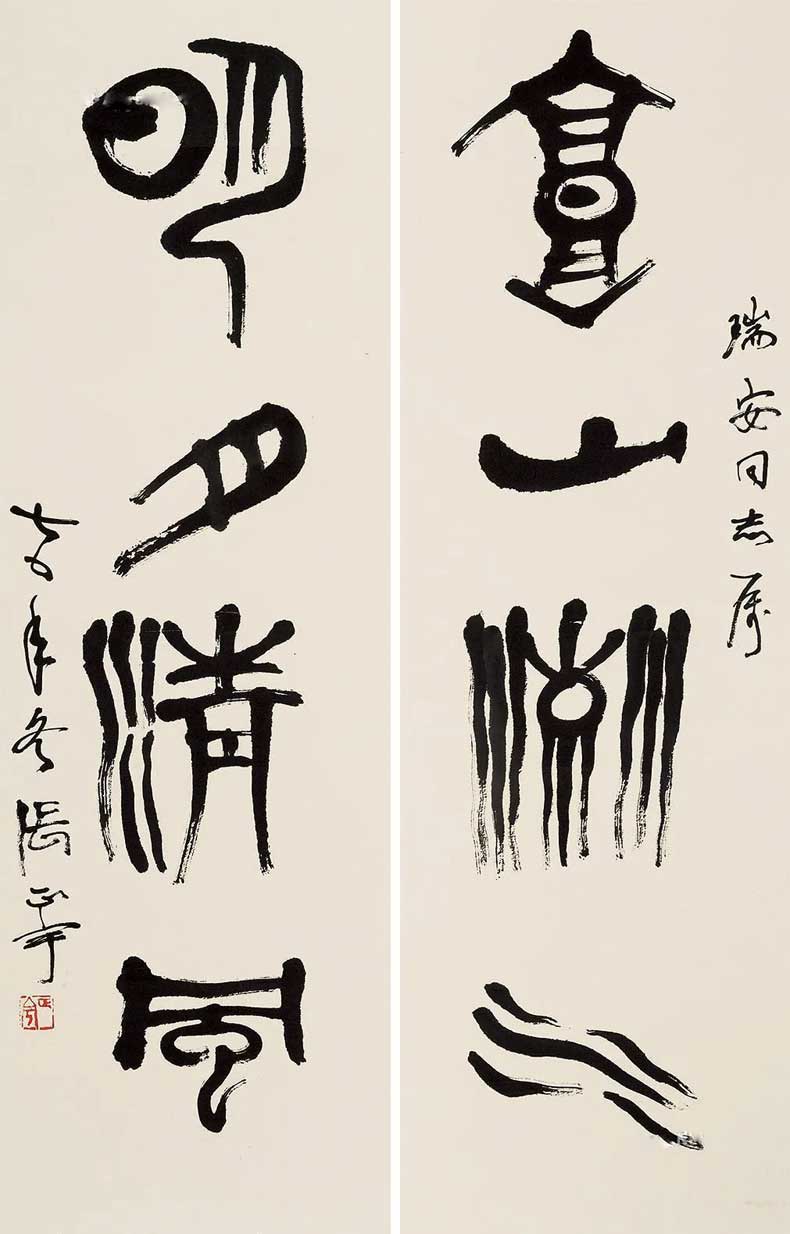 瑞安同志属
高山流水
明月清風
七五年冬張正宇